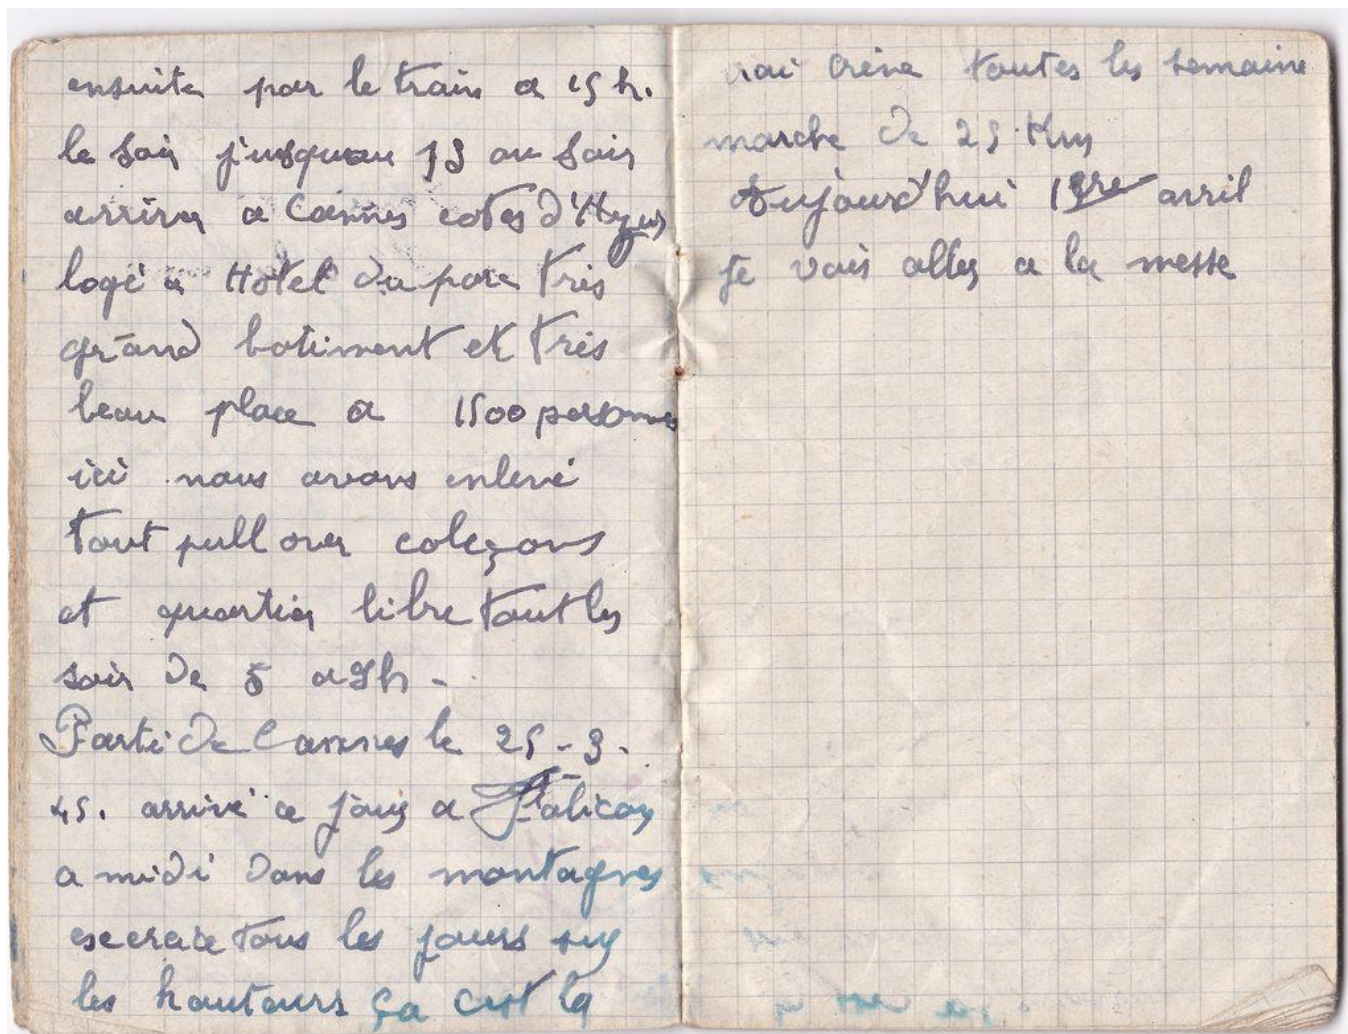 ensuite par le train a 15 h.
le soir jusquau 13 au soir
arriver a Cannes cotes d'Azur
logé a Hotel du parc très
grand batiment et très
beau place a 1500 personnes
ici nous avons enlevé
tout pull over caleçons
et quartier libre tout les
soir de 5 a 9h -
Parti de Cannes le 25 - 3 -
45. arrivé ce jour a Falicon
a midi dans les montagnes
execrice tous les jours sur
les hauteurs ça cest la
vai crève toutes les semaine
marche de 25 Km
Aujourd'hui 1ere avril
je vais aller a la messe